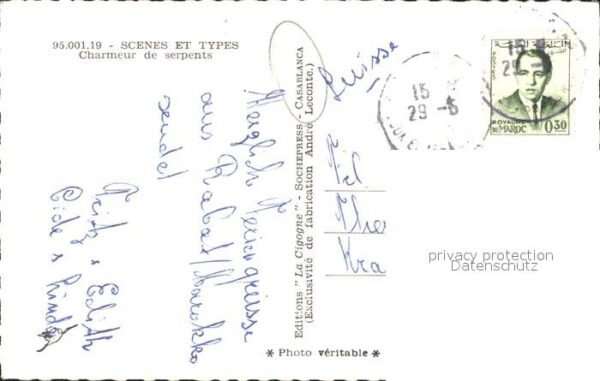 95.001.19 - SCENES ET TYPES
Charmeur de serpents
Herzlich Feriengrüsse
aus Rabat/Marokko
sendet
Fritz & Edith
Editions "La Cigogne" - SOCHEPRESS - CASABLANCA
(Exclusivité de fabrication André Leconte.)
* Photo véritable *
Suisse
15
29 - 5
15
29
ROYAUME
DU MAROC
0,30
privacy protection
Datenschutz